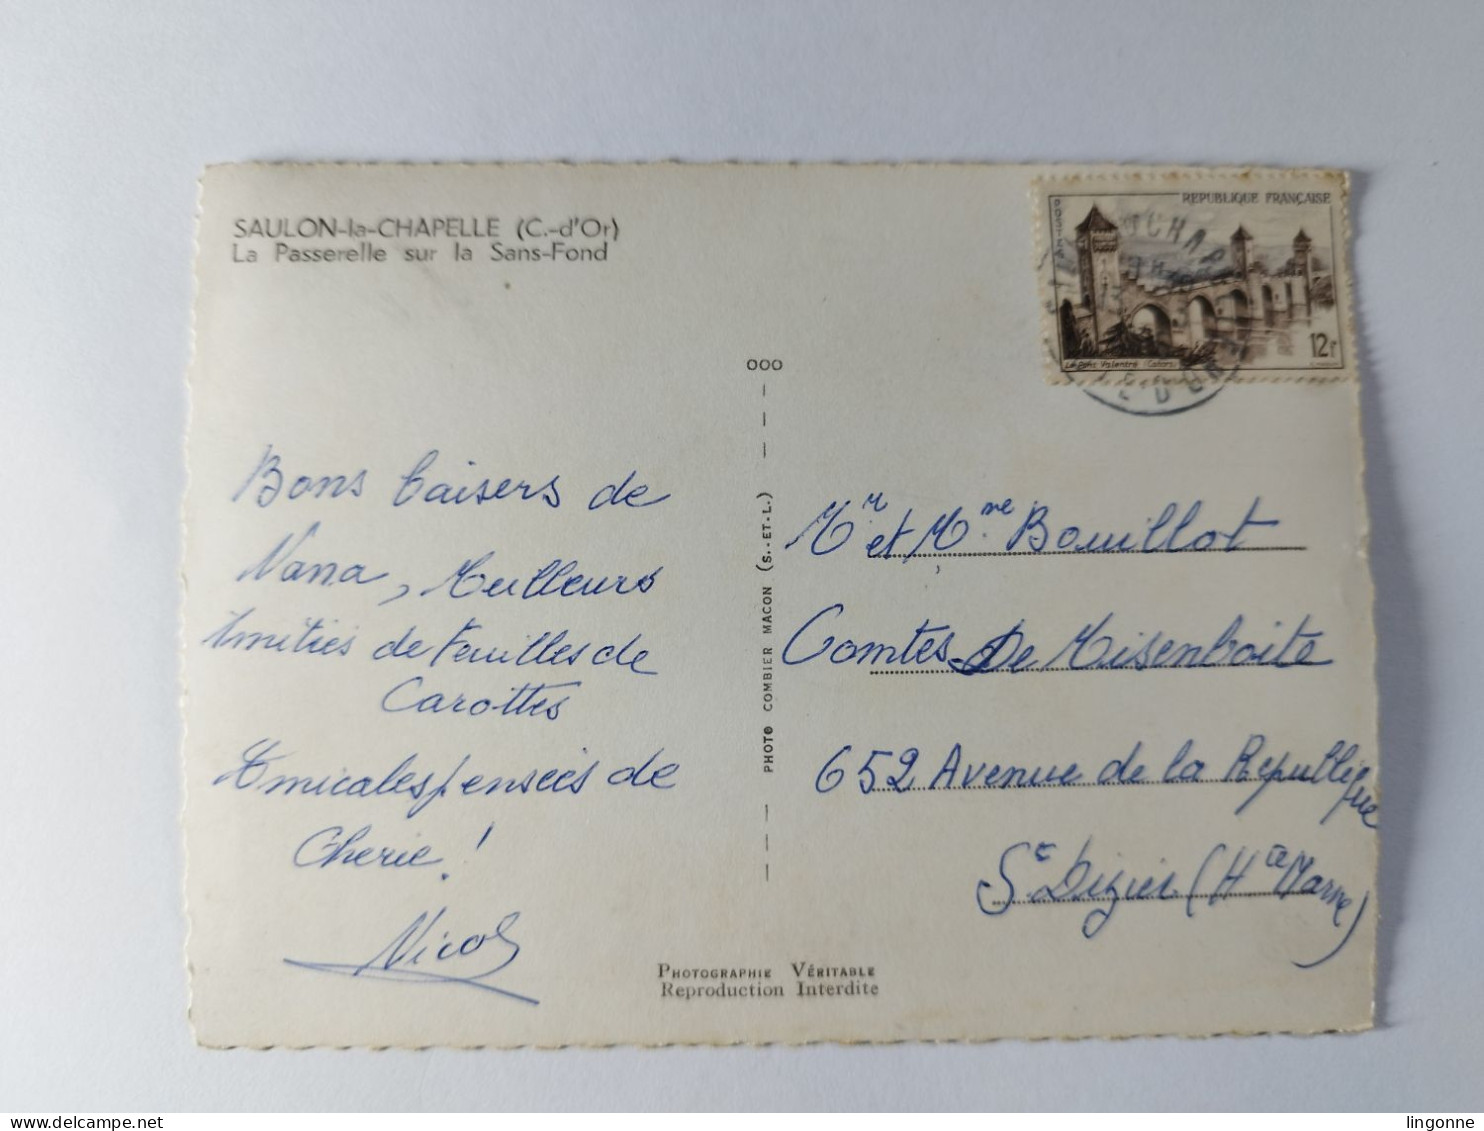 SAULON-la-CHAPELLE (C.-d'Or)
La Passerelle sur la Sans-Fond
REPUBLIQUE FRANÇAISE
POSTES
Le Pont Valentré (Cahors)
12f
OOO
Bons baisers de
Nana, Meilleurs
Amitiés de Feuilles de
Carottes
Amicales pensées de
Cherie!
Nicol
PHOTO COMBIER MACON (S.-ET-L.)
Mr et Mme Bouillot
Comtes De Misenboite
652 Avenue de la République
St Dizier (Hte Marne)
PHOTOGRAPHIE VÉRITABLE
Reproduction Interdite
lingonne